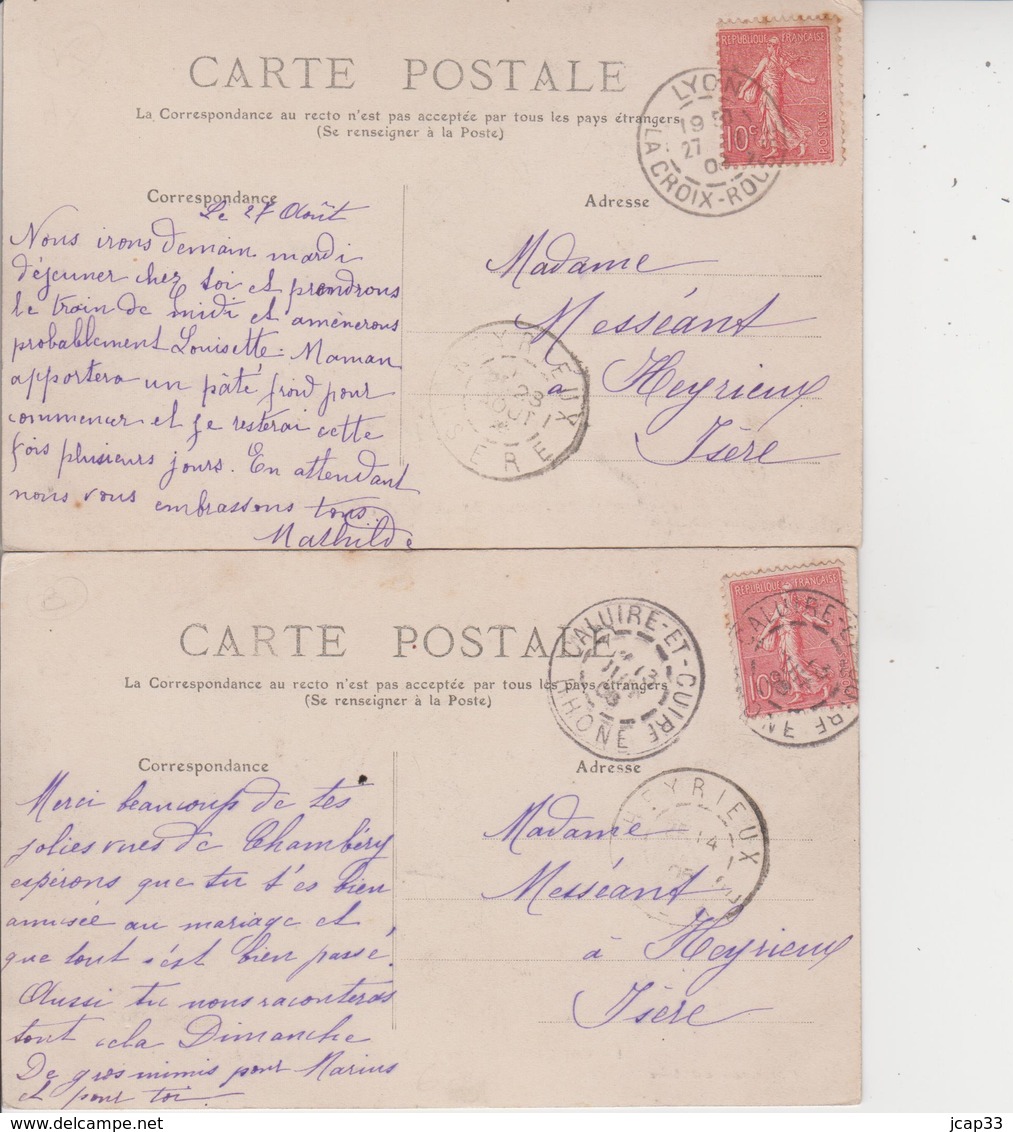 CARTE POSTALE
La Correspondance au recto n'est pas acceptée par tous les pays étrangers
(Se renseigner à la Poste)
REPUBLIQUE FRANÇAISE
10c
POSTES
LYON
LA CROIX-ROU
19
27
Correspondance
Adresse
Le 27 Août
Nous irons demain mardi
déjeuner chez toi et prendrons
le train de midi et amènerons
probablement Louisette. Maman
apportera un pâté froid pour
commencer et je resterai cette
fois plusieurs jours. En attendant
nous vous embrassons tous.
Mathilde
Madame
Messéant
à Heyrieux
Isère
HEYRIEUX
28
AOUT
ISERE
CARTE POSTALE
La Correspondance au recto n'est pas acceptée par tous les pays étrangers
(Se renseigner à la Poste)
REPUBLIQUE FRANÇAISE
10c
CALUIRE-ET-CUIRE
RHONE
13
CALUIRE-ET-CUIRE
RHONE
13
Correspondance
Adresse
Merci beaucoup de tes
jolies vues de Chambéry
espérons que tu t'es bien
amusée au mariage et
que tout s'est bien passé.
Aussi tu nous raconteras
tout cela Dimanche
De gros mimis pour Marius
et pour toi
Madame
Messéant
à Heyrieux
Isère
HEYRIEUX
14
delcampe.net
jcap33